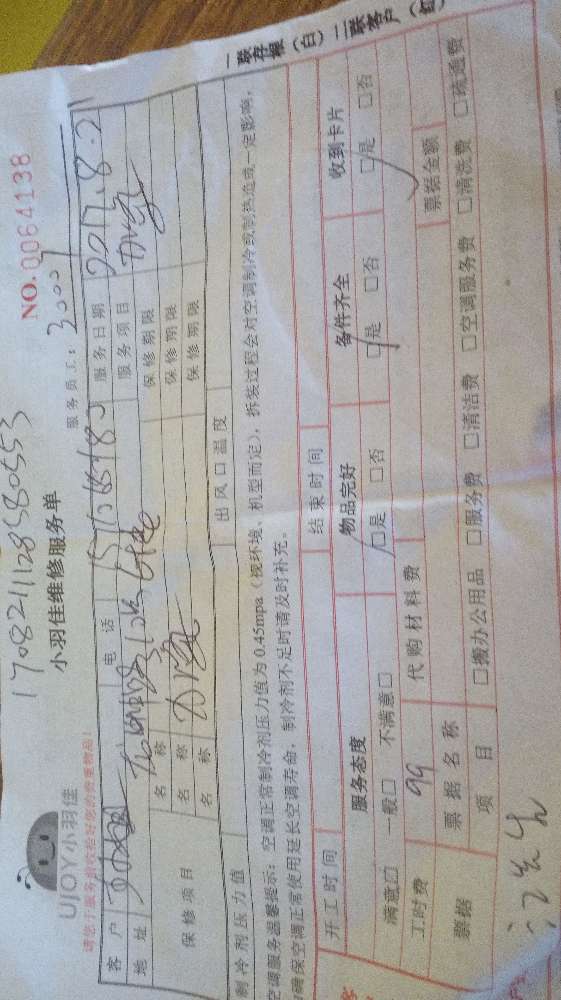 1708211128580553
NO.0064138
小羽佳维修服务单
UJOY小羽佳
请您于服务前收拾好您的贵重物品!
服务员工:
客户 电话 服务日期 2017.8.21
地址 服务项目
保修项目 名称 保修期限
名称 保修期限
名称 保修期限
制冷剂压力值 出风口温度
空调服务器馨提示:空调正常制冷剂压力值为0.45mpa(视环境、机型而定),拆装过程会对空调制冷或制热造成一定影响,
确保空调正常使用延长空调寿命,制冷剂不足时请及时补充。
开工时间 结束时间
服务态度 物品完好 备件齐全 收到卡片
满意□ 一般□ 不满意□ □是 □否 □是 □否 □是 □否
工时费 99 代购材料费 票据金额
票据 票据名称
项目 □搬办公用品 □服务费 □清洁费 □空调服务费 □清洗费 □疏通费
一联存根(白)二联客户(红)